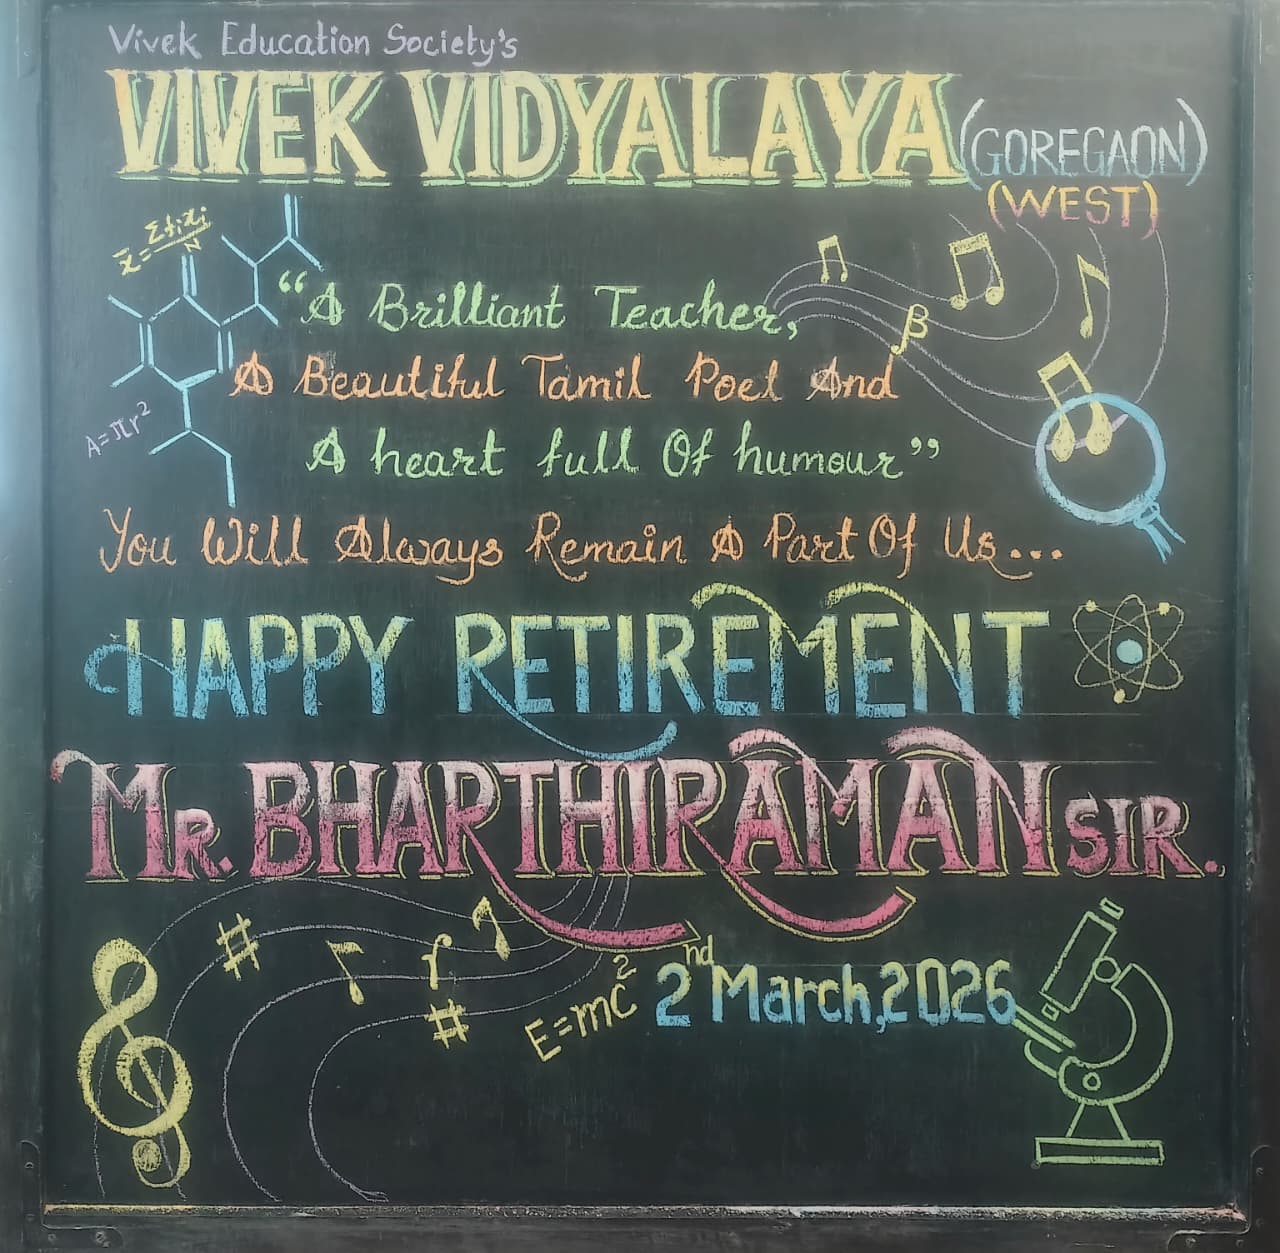 Vivek Education Society's
VIVEK VIDYALAYA (GOREGAON)
(WEST)
x̄ = Σfixi / N
"A Brilliant Teacher,
β
A Beautiful Tamil Poet And
A = πr²
A heart full Of humour"
You Will Always Remain A Part Of Us...
HAPPY RETIREMENT
MR. BHARTHIRAMAN SIR.
E=mc²
2nd March, 2026